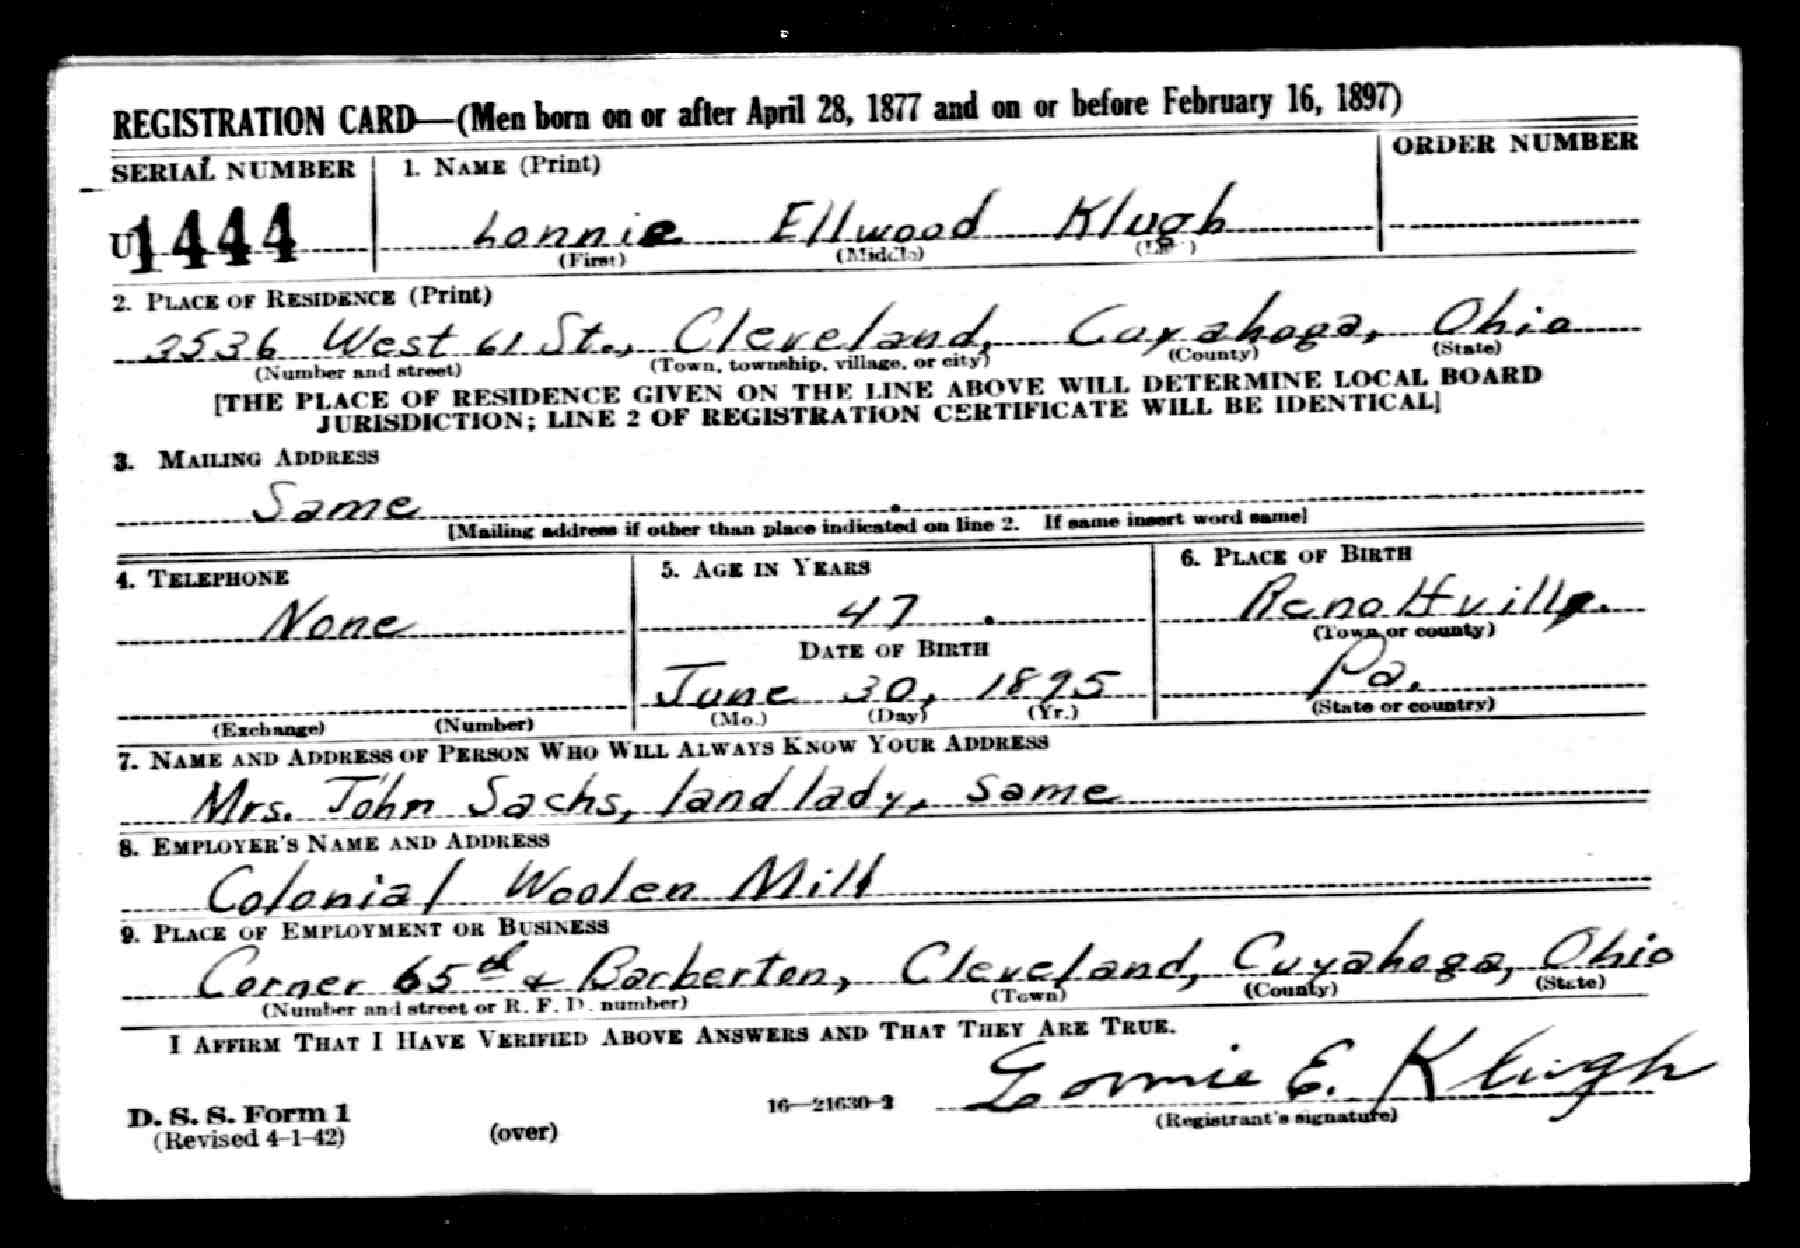 REGISTRATION CARD—(Men born on or after April 28, 1877 and on or before February 16, 1897)
SERIAL NUMBER
1. NAME (Print)
ORDER NUMBER
U1444
Lonnie Ellwood Klugh
(First) (Middle) (Last)
2. PLACE OF RESIDENCE (Print)
3536 West 61 St., Cleveland, Cuyahoga, Ohio
(Number and street) (Town, township, village, or city) (County) (State)
[THE PLACE OF RESIDENCE GIVEN ON THE LINE ABOVE WILL DETERMINE LOCAL BOARD
JURISDICTION; LINE 2 OF REGISTRATION CERTIFICATE WILL BE IDENTICAL]
3. MAILING ADDRESS
Same
[Mailing address if other than place indicated on line 2. If same insert word same]
4. TELEPHONE
None
(Exchange) (Number)
5. AGE IN YEARS
47
DATE OF BIRTH
June 30, 1895
(Mo.) (Day) (Yr.)
6. PLACE OF BIRTH
(Town or county)
Pa.
(State or country)
7. NAME AND ADDRESS OF PERSON WHO WILL ALWAYS KNOW YOUR ADDRESS
Mrs. John Sachs, landlady, same
8. EMPLOYER'S NAME AND ADDRESS
Colonial Woolen Mill
9. PLACE OF EMPLOYMENT OR BUSINESS
Corner 65th & Barberton, Cleveland, Cuyahoga, Ohio
(Number and street or R. F. D. number) (Town) (County) (State)
I AFFIRM THAT I HAVE VERIFIED ABOVE ANSWERS AND THAT THEY ARE TRUE.
Lonnie E. Klugh
D. S. S. Form 1
(Revised 4-1-42)
(over)
16—21630-2
(Registrant's signature)